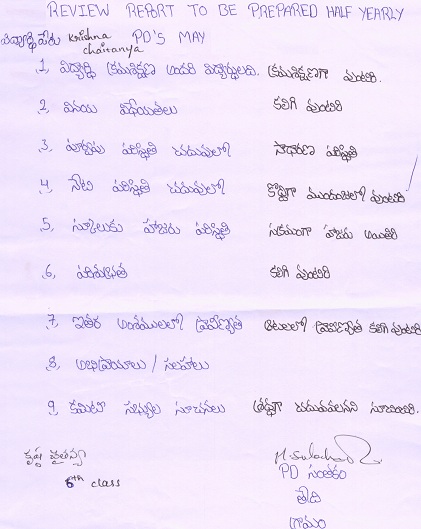 REVIEW REPORT TO BE PREPARED HALF YEARLY
విద్యార్థి పేరు Krishna chaitanya PD'S MAY
1, విద్యార్థి క్రమశిక్షణ ఇందరి విద్యార్థులది. క్రమశిక్షణగా వుంటిరి.
2. వినయ విధేయతలు కలిగి వుంటిరి
3. పూర్వపు పరిస్థితి చదువులో సాధారణ పరిస్థితి
4. నేటి పరిస్థితి చదువులో కొద్దిగా ముందంజలో వుంటిరి
5. స్కూలుకు హాజరు పరిస్థితి సక్రమంగా హాజరు అయితిరి
6. పరిశుభ్రత కలిగి వుంటిరి
7. ఇతర అంశములలో ప్రావీణ్యత ఆటలలో ప్రావీణ్యత కలిగి వుంటిరి
8. అభిప్రాయాలు / సలహాలు
9. కమిటీ సభ్యుల సూచనలు శ్రద్ధగా చదువవలెనని సూచించిరి.
కృష్ణ చైతన్య
6th class
PD సంతకం
గ్రామం